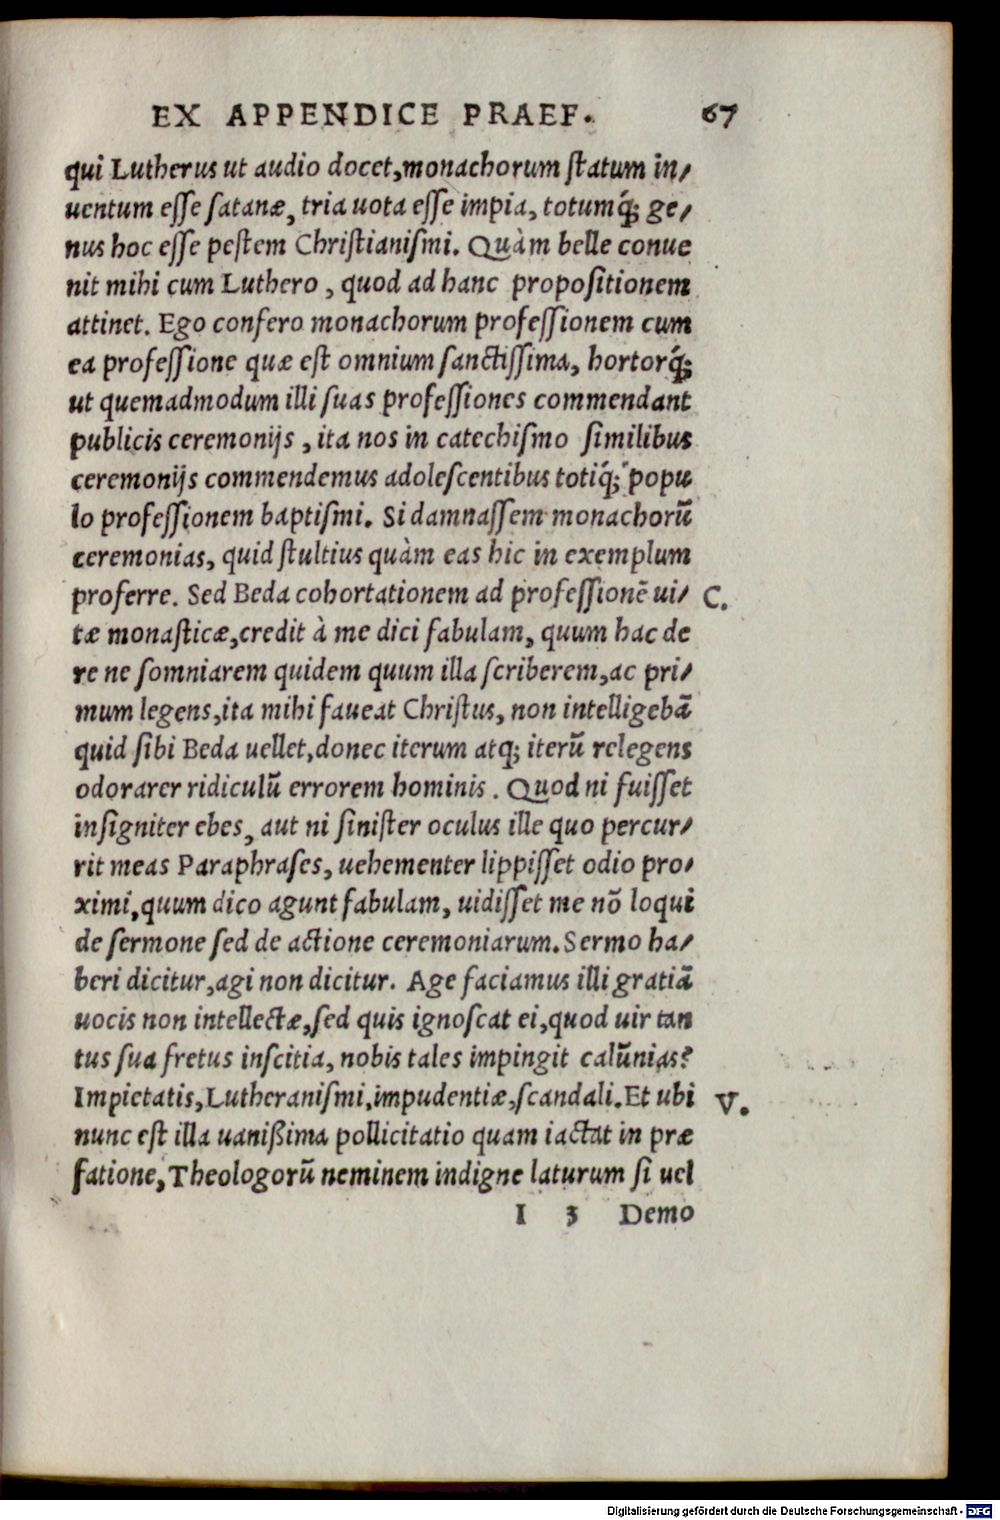 EX APPENDICE PRAEF. 67
qui Lutherus ut audio docet,monachorum ſtatum in/
uentum eſſe ſatanæ, tria uota eſſe impia, totumq́; ge/
nus hoc eſſe peſtem Chriſtianiſmi. Quàm belle conue
nit mihi cum Luthero , quod ad hanc propoſitionem
attinet. Ego confero monachorum profeſſionem cum
ea profeſſione quæ eſt omnium ſanctiſſima, hortorq́;
ut quemadmodum illi ſuas profeſſiones commendant
publicis ceremonijs , ita nos in catechiſmo ſimilibus
ceremonijs commendemus adoleſcentibus totiq́; popu
lo profeſſionem baptiſmi. Si damnaſſem monachorū
ceremonias, quid ſtultius quàm eas hic in exemplum
proferre. Sed Beda cohortationem ad profeſſionē ui/ C.
tæ monaſticæ,credit à me dici fabulam, quum hac de
re ne ſomniarem quidem quum illa ſcriberem,ac pri/
mum legens,ita mihi faueat Chriſtus, non intelligebā
quid ſibi Beda uellet,donec iterum atq; iterū relegens
odorarer ridiculū errorem hominis . Quod ni fuiſſet
inſigniter ebes, aut ni ſiniſter oculus ille quo percur/
rit meas Paraphraſes, uehementer lippiſſet odio pro/
ximi,quum dico agunt fabulam, uidiſſet me nō loqui
de ſermone ſed de actione ceremoniarum. Sermo ha/
beri dicitur,agi non dicitur. Age faciamus illi gratiā
uocis non intellectæ,ſed quis ignoſcat ei,quod uir tan
tus ſua fretus inſcitia, nobis tales impingit calūnias?
Impietatis,Lutheraniſmi,impudentiæ,ſcandali. Et ubi V.
nunc eſt illa uanißima pollicitatio quam iactat in præ
fatione, Theologorū neminem indigne laturum ſi uel
I 3 Demo
Digitalisierung gefördert durch die Deutsche Forschungsgemeinschaft - DFG